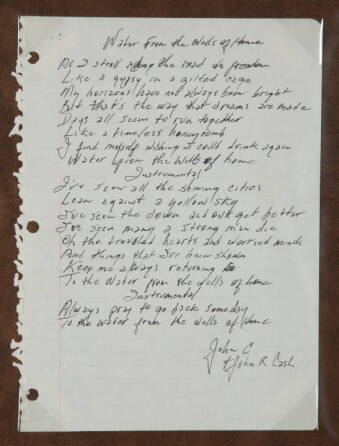 Water From the Wells of Home
As I stroll along the road to freedom
Like a gypsy in a gilted cage
My horizons have not always been bright
But that's the way that dreams are made
Days all seem to run together
Like a timeless honeycomb
I find myself wishing I could drink again
Water from the wells of home
Instrumental
I've seen all the shining cities
Lean against a yellow sky
I've seen the down and out get better
I've seen many a strong man die
Oh the troubled hearts and worried minds
And things that I've been shown
Keep me always returning to
To the Water from the wells of home
Instrumental
Always pray to go back someday
To the water from the wells of home
John C
John R Cash